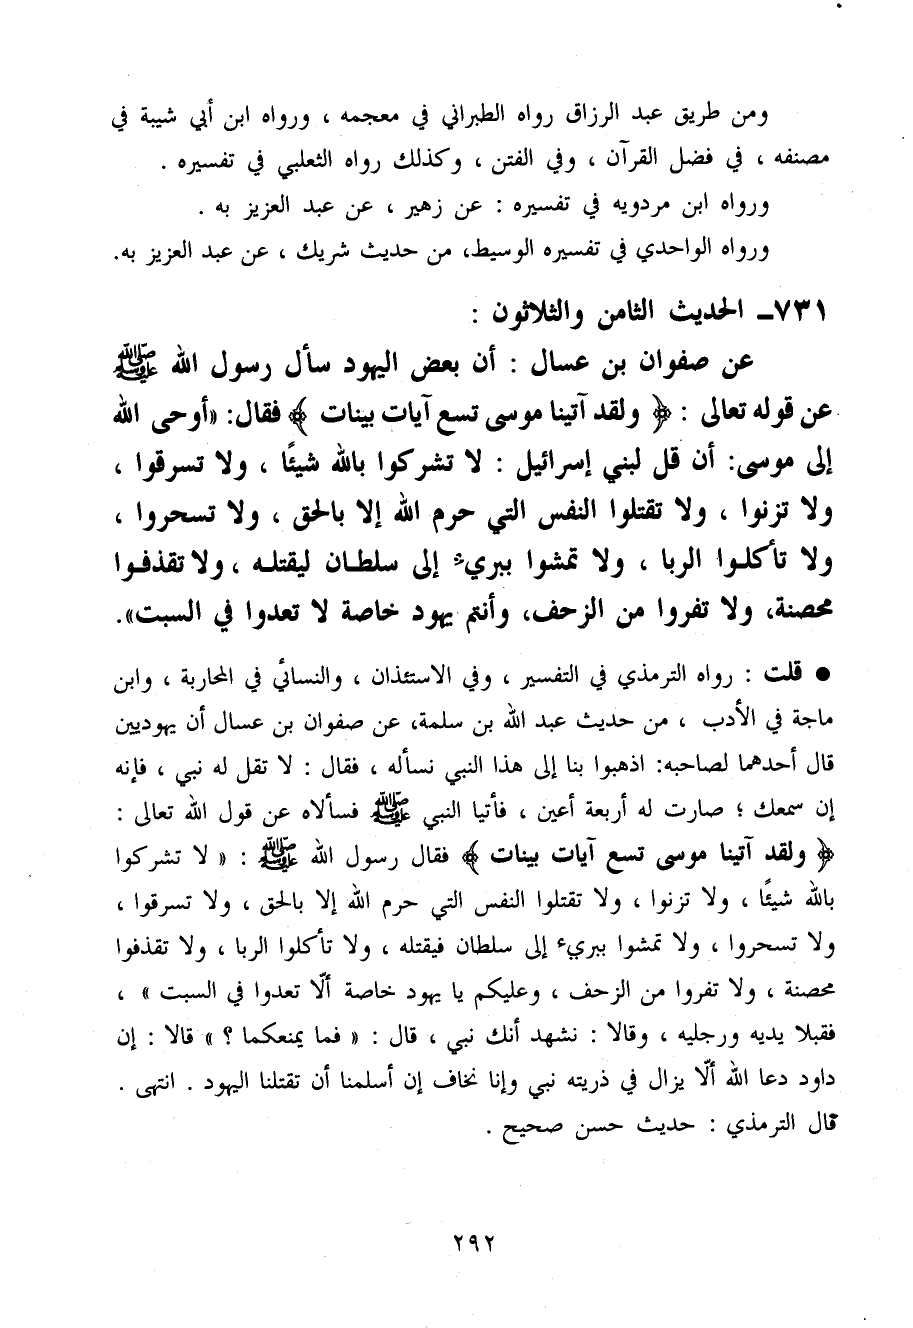 ومن طريق عبد الرزاق رواه الطبراني في معجمه ، ورواه ابن أبي شيبة في
مصنفه ، في فضل القرآن ، وفي الفتن ، وكذلك رواه الثعلبي في تفسيره .
ورواه ابن مردويه في تفسيره : عن زهير ، عن عبد العزيز به .
ورواه الواحدي في تفسيره الوسيط، من حديث شريك ، عن عبد العزيز به.
٧٣١ـ الحديث الثامن والثلاثون :
عن صفوان بن عسال : أن بعض اليهود سأل رسول الله ﷺ
عن قوله تعالى : ﴿ ولقد آتينا موسى تسع آيات بينات ﴾ فقال: «أوحى الله
إلى موسى: أن قل لبني إسرائيل : لا تشركوا بالله شيئًا ، ولا تسرقوا ،
ولا تزنوا ، ولا تقتلوا النفس التي حرم الله إلا بالحق ، ولا تسحروا ،
ولا تأكلوا الربا ، ولا تمشوا ببريء إلى سلطان ليقتله ، ولا تقذفوا
محصنة، ولا تفروا من الزحف، وأنتم يهود خاصة لا تعدوا في السبت».
● قلت : رواه الترمذي في التفسير ، وفي الاستئذان ، والنسائي في المحاربة ، وابن
ماجة في الأدب ، من حديث عبد الله بن سلمة، عن صفوان بن عسال أن يهوديين
قال أحدهما لصاحبه: اذهبوا بنا إلى هذا النبي نسأله ، فقال : لا تقل له نبي ، فإنه
إن سمعك ؛ صارت له أربعة أعين ، فأتيا النبي ﷺ فسألاه عن قول الله تعالى :
﴿ ولقد آتينا موسى تسع آيات بينات ﴾ فقال رسول الله ﷺ : « لا تشركوا
بالله شيئًا ، ولا تزنوا ، ولا تقتلوا النفس التي حرم الله إلا بالحق ، ولا تسرقوا ،
ولا تسحروا ، ولا تمشوا ببريء إلى سلطان فيقتله ، ولا تأكلوا الربا ، ولا تقذفوا
محصنة ، ولا تفروا من الزحف ، وعليكم يا يهود خاصة ألّا تعدوا في السبت » ،
فقبلا يديه ورجليه ، وقالا : نشهد أنك نبي ، قال : « فما يمنعكما ؟ » قالا : إن
داود دعا الله ألّا يزال في ذريته نبي وإنا نخاف إن أسلمنا أن تقتلنا اليهود . انتهى .
قال الترمذي : حديث حسن صحيح .
٢٩٢